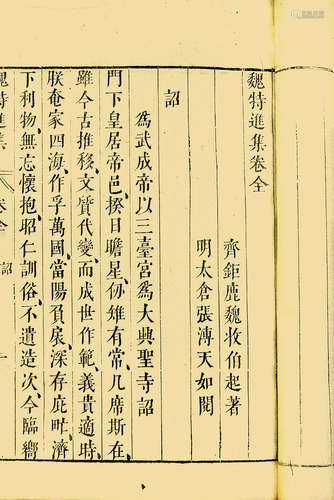 魏特進集卷全
齊鉅鹿魏收伯起著
明太倉張溥天如閱
詔
爲武成帝以三臺宮爲大興聖寺詔
門下皇居帝邑揆日瞻星仞雉有常几席斯在
雖今古推移文質代變而成世作範義貴適時
朕奄家四海作孚萬國當陽負扆深存庇畔濟
下利物無忘懷抱昭仁訓俗不遺造次今臨嚮
魏特進集
卷全
詔
一